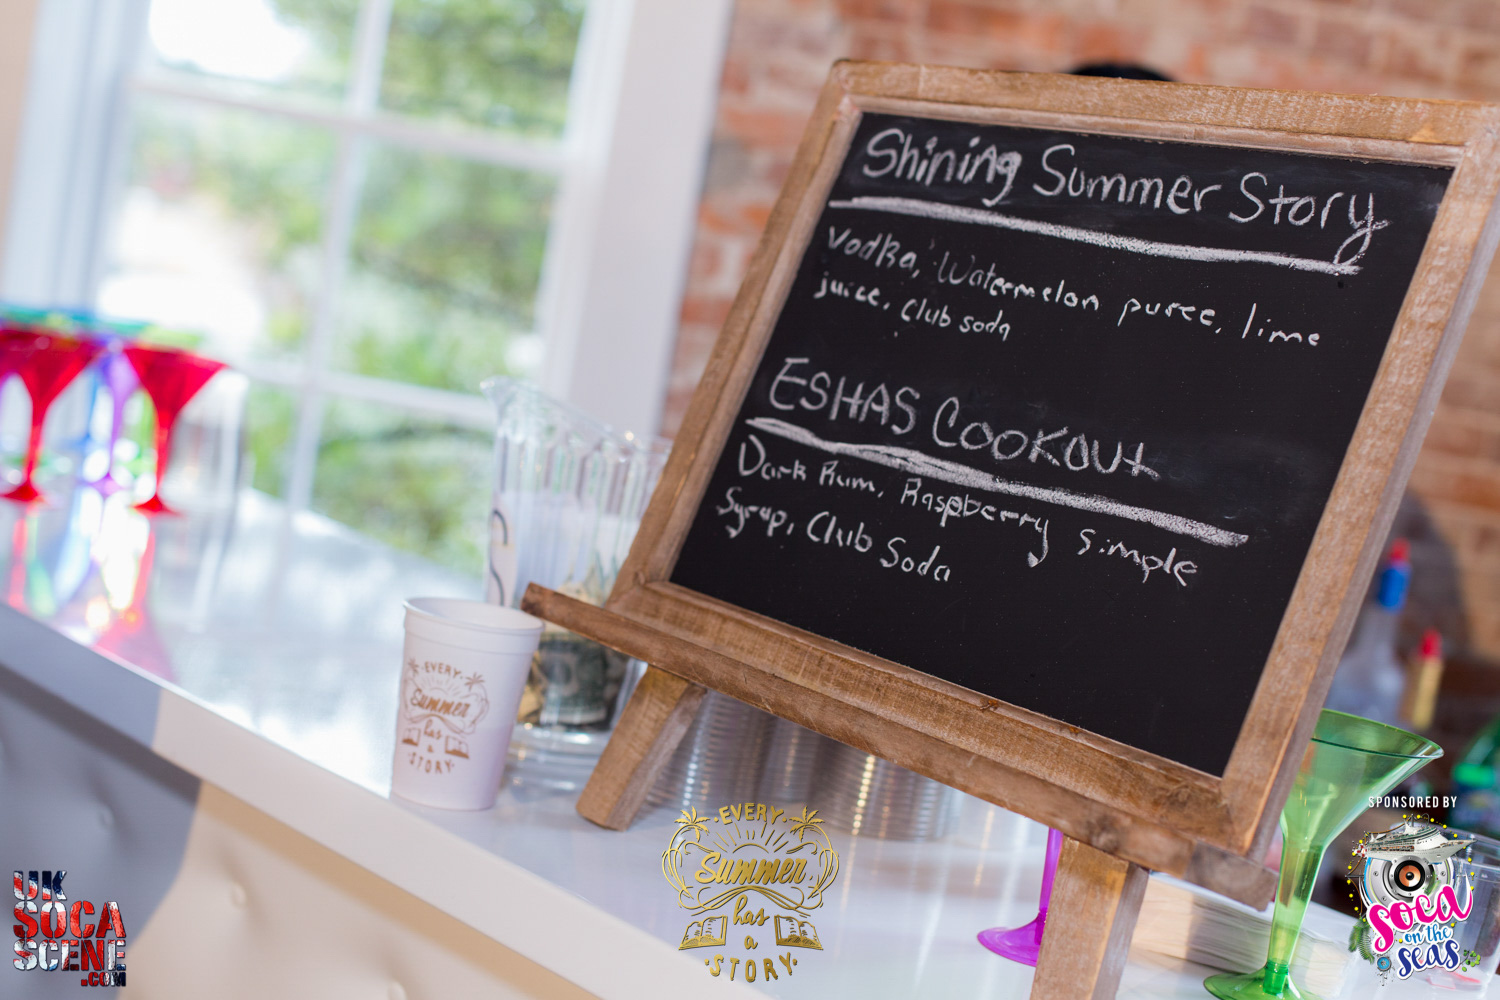 Shining Summer Story
Vodka, Watermelon puree, lime
juice, Club soda
ESHAS COOKOUT
Dark Rum, Raspberry simple
Syrup, Club Soda
EVERY
Summer
has
a
STORY
EVERY
Summer
has
a
STORY
UK
SOCA
SCENE
.COM
SPONSORED BY
Soca
on the
seas